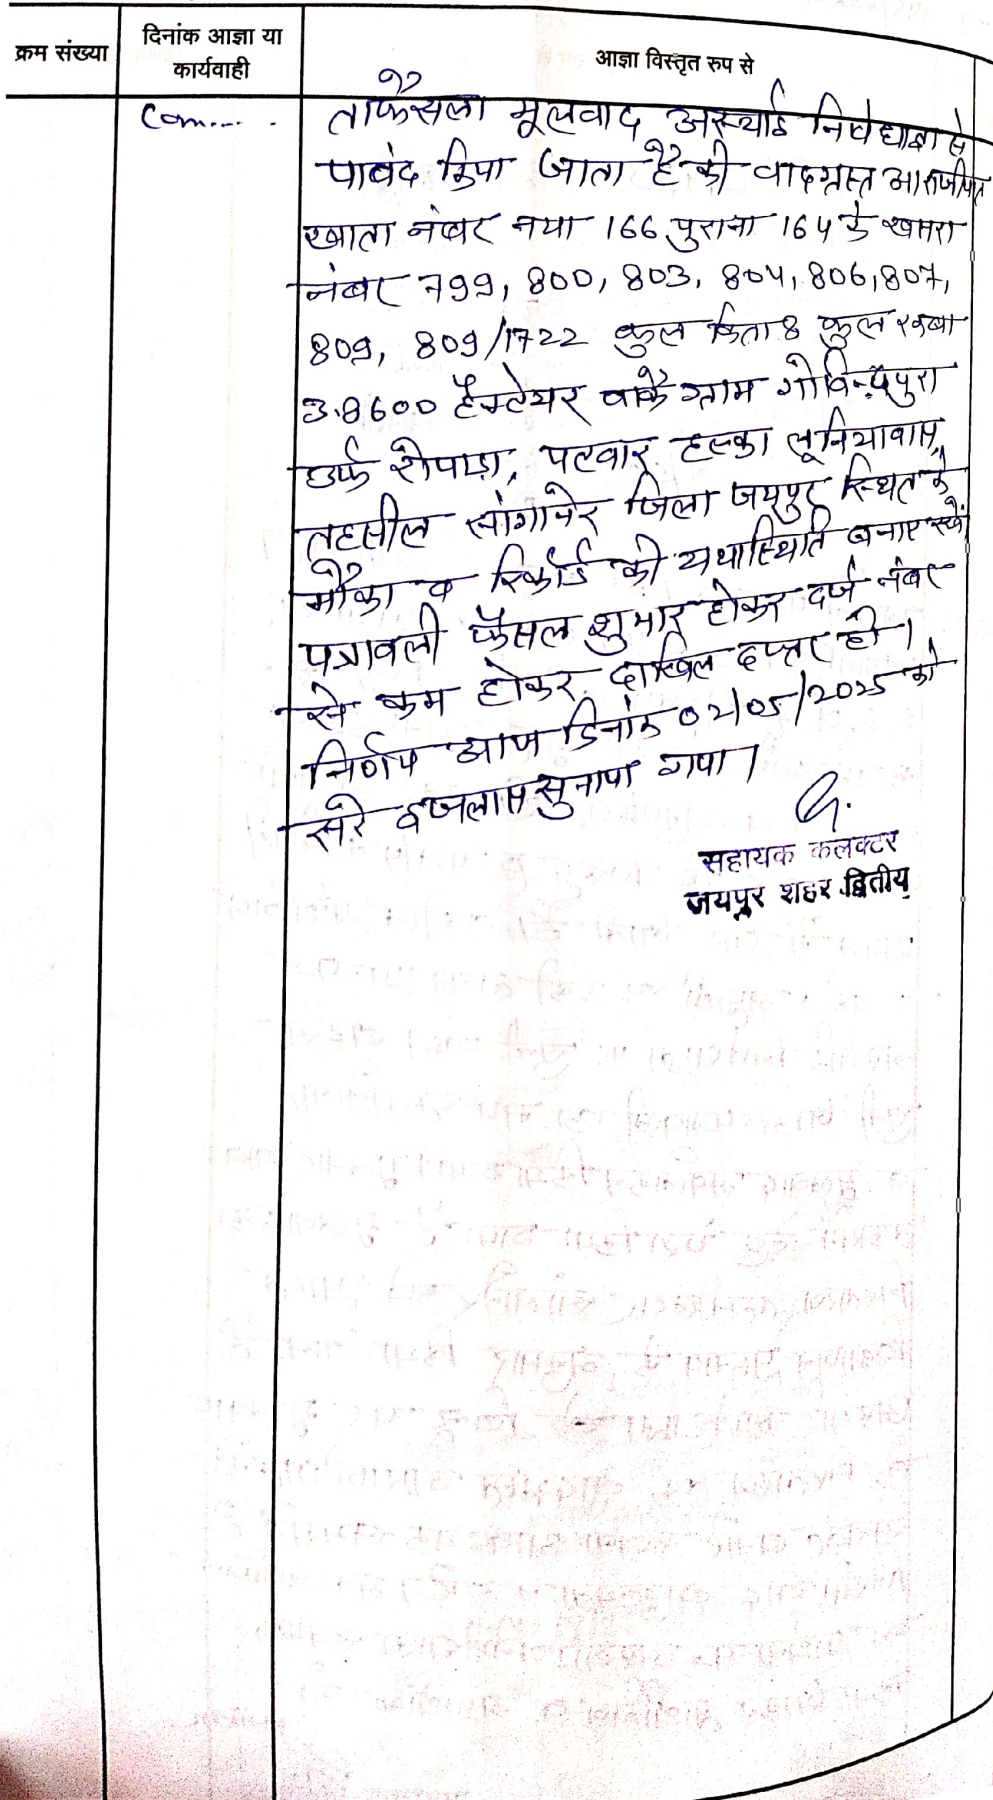 क्रम संख्या
दिनांक आज्ञा या
कार्यवाही
आज्ञा विस्तृत रुप से
Com.....
ताफैसला मूलवाद अस्थाई निषेधाज्ञा से
पाबंद किया जाता है की वादग्रस्त
खाता नंबर नया 166 पुराना 164 के खसरा
नंबर 799, 800, 803, 804, 806, 807,
809, 809/1722 कुल किता 8 कुल रकबा
3.8600 हैक्टेयर वाकै ग्राम गोविन्दपुरा
उर्फ रोपाड़ा, पटवार हल्का लूनियावास,
तहसील सांगानेर जिला जयपुर स्थित के
मौका व रिकॉर्ड की यथास्थिति बनाए रखें
पत्रावली फैसल शुमार होकर दर्ज नंबर
से कम होकर दाखिल दफ्तर हो।
निर्णय आज दिनांक 02/05/2025 को
सरे इजलास सुनाया गया।
सहायक कलक्टर
जयपुर शहर द्वितीय